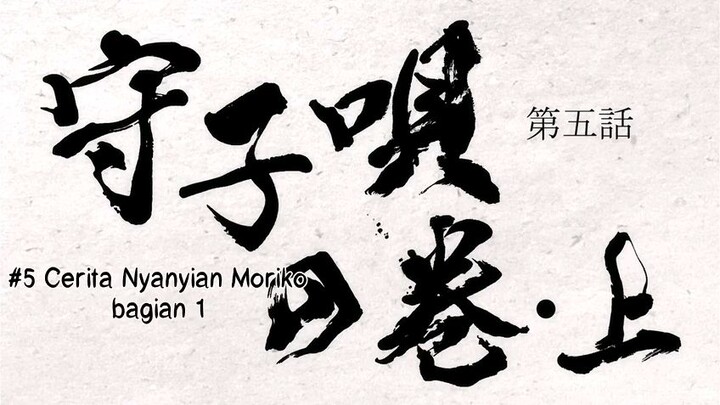 守子唄
の巻・上
第五話
#5 Cerita Nyanyian Moriko
bagian 1